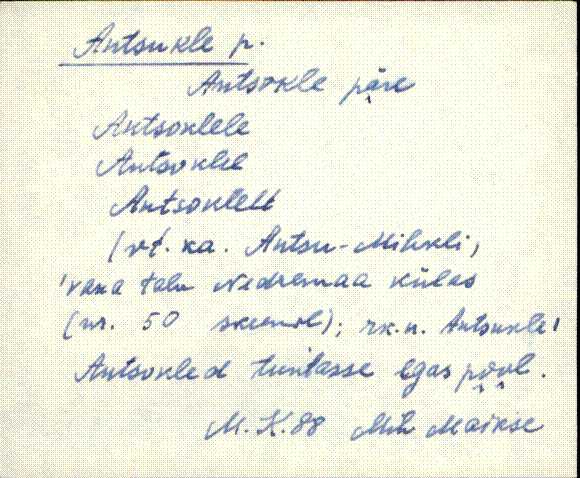 Antsukle p.
Antsokle päre
Antsoklele
Antsoklel
Antsoklelt
(vt. ka. Antsu-Mihkli,
'vana talu Nedremaa külas
(nr. 50 skeemil); rk.n. Antsukle'
Antsokled tuntasse egas pool.
M.K.88 Mih Maikse